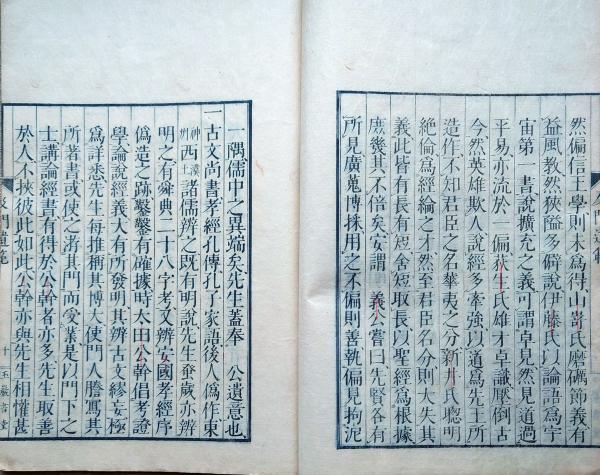 然偏信王學則未為得山嵜氏磨礪節義有
益風教然狹隘多僻說伊藤氏以論語為宇
宙第一書說擴充之義可謂卓見然見道過
平易亦流於一偏荻生氏雄才卓識壓倒古
今然英雄欺人說經多牽強以道為先王所
造作不知君臣之名華夷之分新井氏聰明
絕倫為經綸之才然至君臣名分則大失其
義此皆有長有短舍短取長以聖經為根據
庶幾其不倍矣安謂 義公嘗曰先賢各有
所見廣蒐博採用之不偏則善執偏見拘泥
一隅儒中之異端矣先生蓋奉 公遺意也
一古文尚書孝經孔傳孔子家語後人偽作東
神州西漢土諸儒辨之既有明說先生發歲亦辨
明之有舜典二十八字考又辨安國孝經序
偽造之跡鑿鑿有確據時太田公幹倡考證
學論說經義大有所發明其辨古文繆妄極
為詳悉先生每推稱其博大使門人謄寫其
所著書或使之游其門而受業是以門下之
士講論經書有得於公幹者亦多先生取善
於人不挾彼此如此公幹亦與先生相懽甚